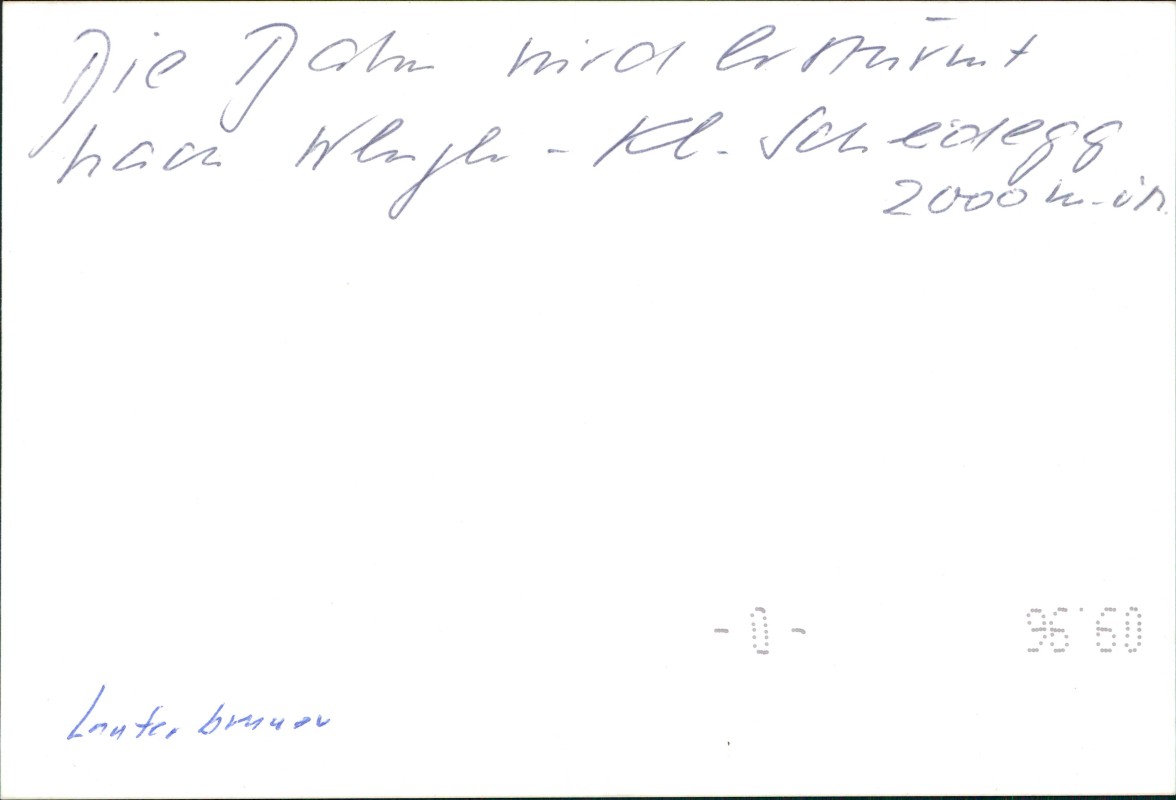 Die Bahn wird erstürmt
nach Wengen - Kl. Scheidegg
2000 m. ü.
- 0 -
96'60
Lauterbrunnen